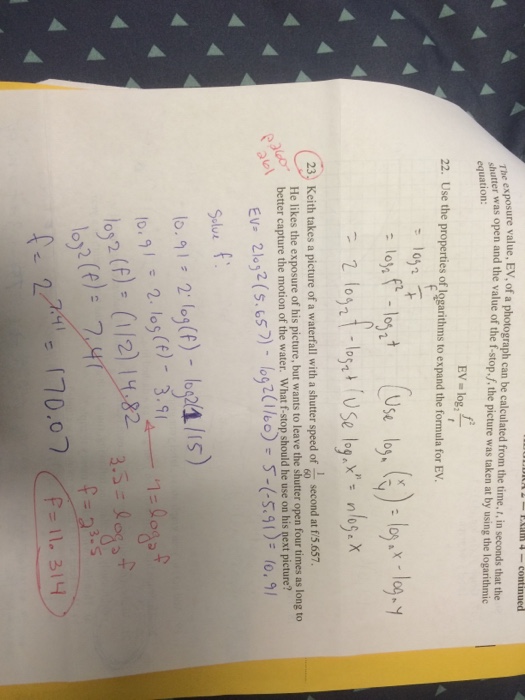 Exam 4 – continued
The exposure value, EV, of a photograph can be calculated from the time, t, in seconds that the
shutter was open and the value of the f-stop, f, the picture was taken at by using the logarithmic
equation:
EV = log₂ f²/t
22. Use the properties of logarithms to expand the formula for EV.
= log₂ f²/t
= log₂ f² - log₂ t (Use logₐ (x/y) = logₐ x - logₐ y
= 2 log₂ f - log₂ t (Use logₐ xⁿ = n logₐ x
23. Keith takes a picture of a waterfall with a shutter speed of 1/60 second at f/5.657.
He likes the exposure of his picture, but wants to leave the shutter open four times as long to
better capture the motion of the water. What f-stop should he use on his next picture?
p260
261
EV = 2log2(5.657) - log2(1/60) = 5-(-5.91) = 10.91
Solve f:
10.91 = 2·log(f) - log2(1/15)
10.91 = 2·log(f) - 3.91
log2(f) = (1/2)14.82
log2(f) = 7.41
f = 2^7.41 = 170.07
7 = log₂ f
3.5 = log₂ f
f = 2^3.5
f = 11.314